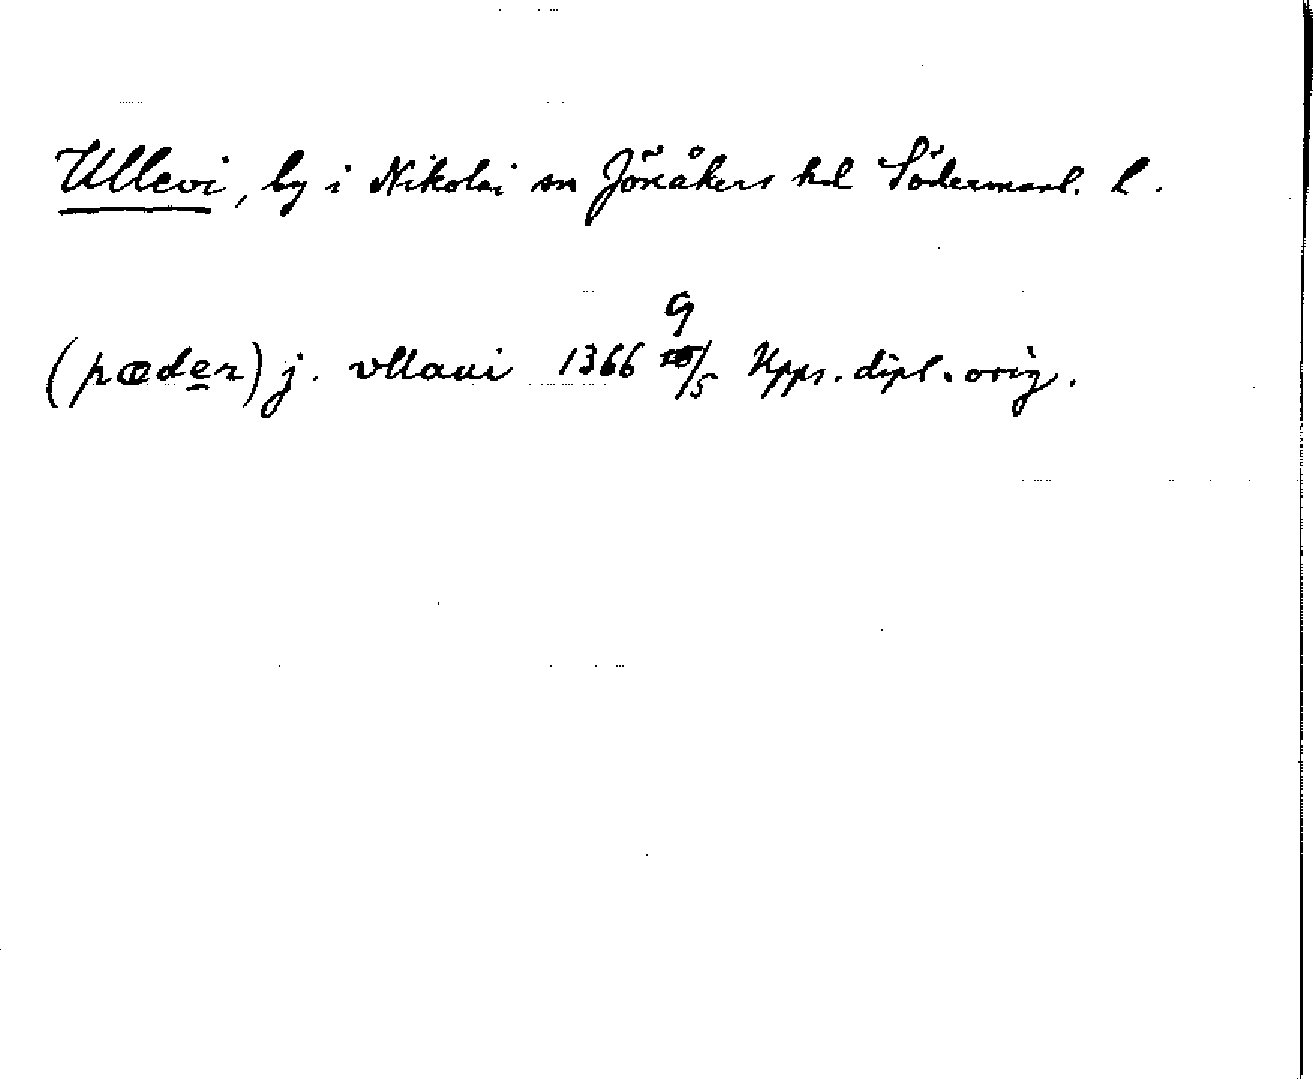 Ullevi, by i Nikolai sn Jönåkers hd Södermanl. l.
(pæder) j. vllaui 1366 9/5 Upps. dipl. orig.